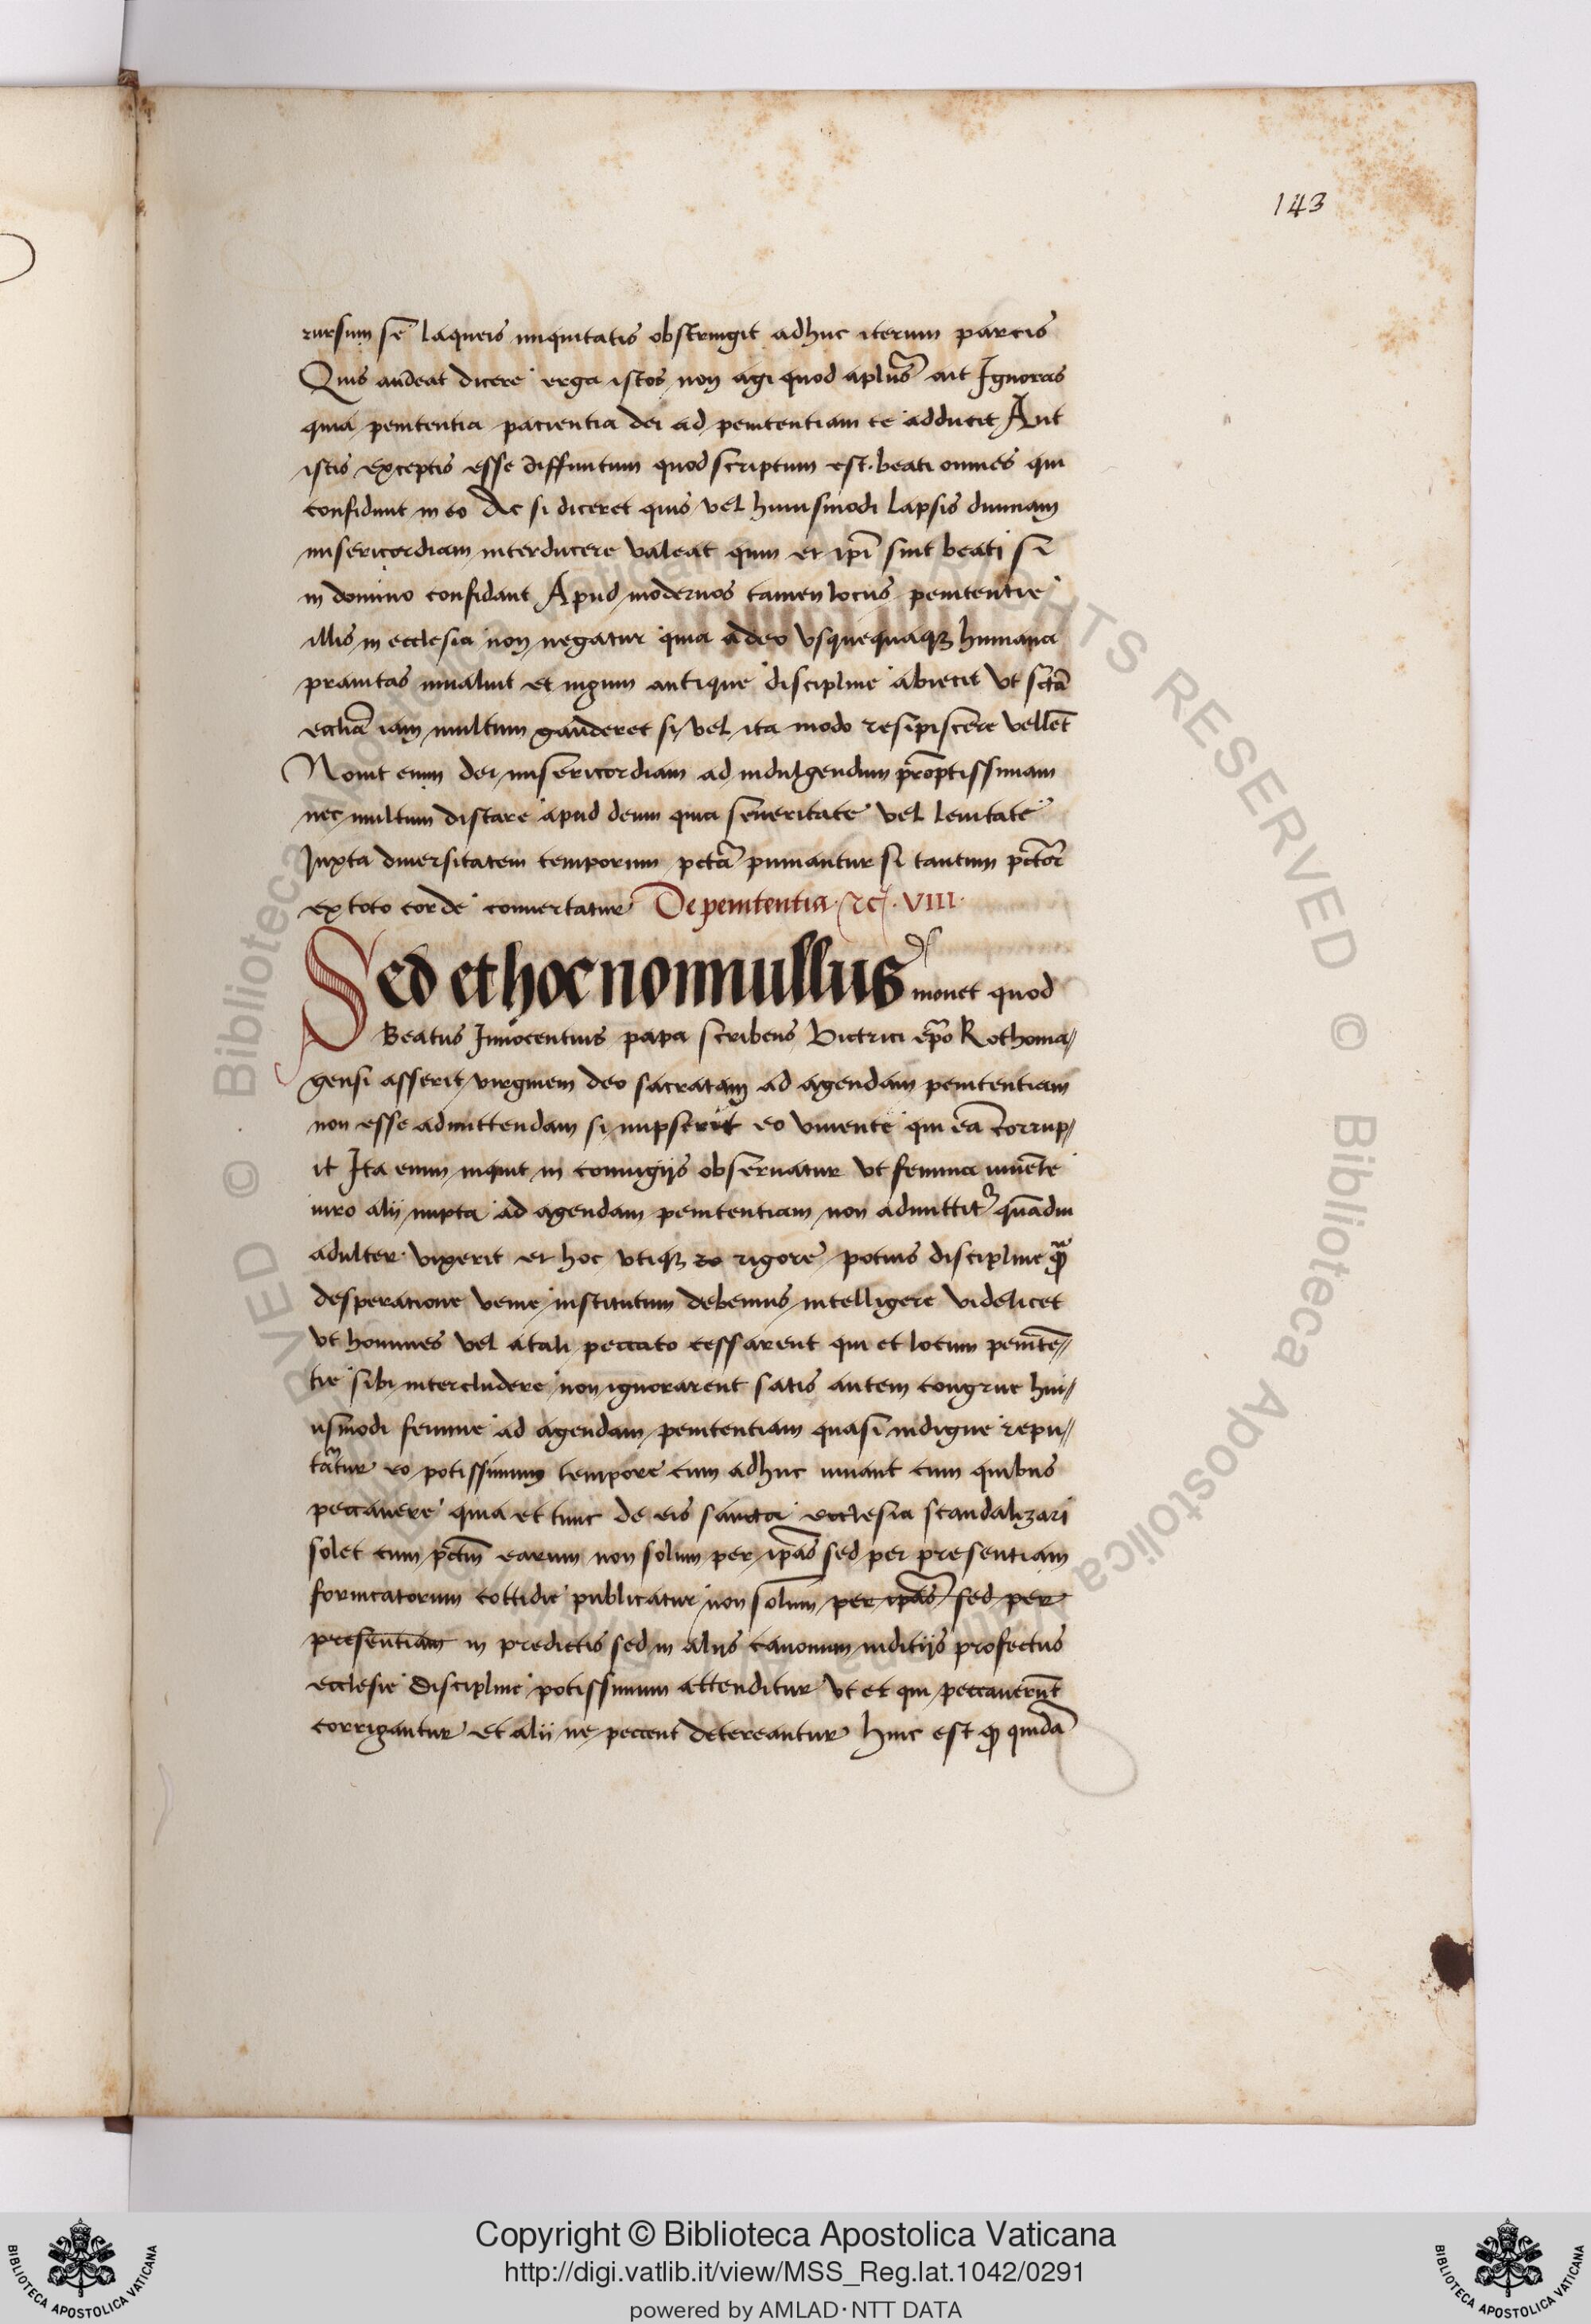 143
rursum se laqueis iniquitatis obstringit adhuc iterum parcis
Quis audeat dicere erga istos non agi quod aplus ait Ignoras
quia penitentia pacientia dei ad penitentiam te adducit Aut
istis exceptis esse diffinitum quod scriptum est. beati omnes qui
confidunt in eo Ac si diceret quis vel huiusmodi lapsis diuinam
misericordiam interducere valeat quin et ipi sint beati si
in domino confidant Apud modernos tamen locus penitentie
illis in ecclesia non negatur quia adeo vsquequaqz humana
prauitas inualuit et iugum antique discipline abiecit vt scta
ecclia iam multum gauderet si vel ita modo resipiscere vellet
Nouit enim dei misericordiam ad indulgendum promptissimam
nec multum distare apud deum qua seueritate vel lenitate
Juxta diuersitatem temporum pcta puniantur si tantum pctor
ex toto corde conuertatur De penitentia. rc. VIII.
Sed et hoc nonnullus monet quod
Beatus Innocentius papa scribens Victrici epo Rothoma//
gensi asserit virginem deo sacratam ad agendam penitentiam
non esse admittendam si nupserit eo viuente qui ea corrup//
it Ita enim inquit in coniugijs obseruatur vt femina uiuete
uiro alij nupta ad agendam penitentiam non admittit quadiu
adulter vixerit et hoc vtiqz eo rigore potius discipline q
desperatione venie institutum debemus intelligere videlicet
vt homines vel a tali peccato cessarent qui et locum penite//
tie sibi intercludere non ignorarent satis autem congrue hui//
usmodi femine ad agendam penitentiam quasi indigne repu//
tantur eo potissimum tempore cum adhuc uiuant cum quibus
peccauere quia et tunc de eis sancta ecclesia scandalizari
solet cum pctm earum non solum per ipas sed per presentiam
fornicatorum cottidie publicatur non solum per ipas sed per
presentiam in predictis sed in alijs canonum inditijs profectus
ecclesie discipline potissimum attenditur vt et qui peccauerut
corrigantur et alij ne peccent detereantur hinc est q quida
Copyright © Biblioteca Apostolica Vaticana
http://digi.vatlib.it/view/MSS_Reg.lat.1042/0291
powered by AMLAD·NTT DATA
BIBLIOTECA APOSTOLICA VATICANA
BIBLIOTECA APOSTOLICA VATICANA